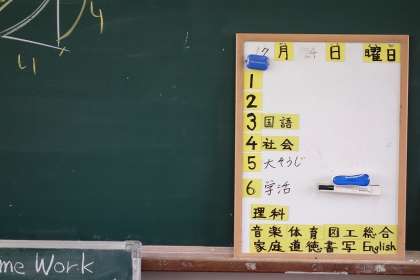 4
4
月 日 曜日
1
2
3 国語
4 社会
5 大そうじ
6 学活
理科
音楽 体育 図工 総合
家庭 道徳 書写 English
me Work